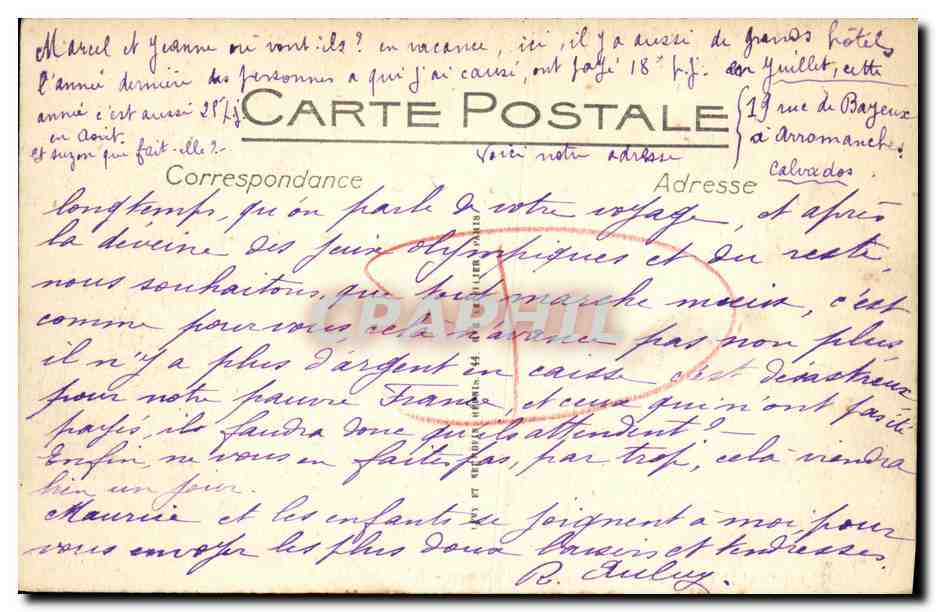 Marcel et Jeanne où vont-ils? en vacance, ici, il y a aussi de grands hôtels
l'année dernière des personnes a qui j'ai causé, ont payé 18f p.j. en Juillet, cette
année c'est aussi 25f p.j.
en Août.
et Suzon que fait-elle?-
CARTE POSTALE
19 rue de Bayeux
à Arromanches.
Calvados.
Voici notre adresse
Correspondance
Adresse
longtemps, qu'on parle de votre voyage, et après
la déveine des jeux olympiques et du reste,
nous souhaitons que tout marche mieux, c'est
comme pour vous, cela n'avance pas non plus
il n'y a plus d'argent en caisse c'est désastreux
pour notre pauvre France, et ceux qui n'ont pas été
payés, ils faudra donc qu'ils attendent?-
Enfin, ne vous en faites pas, par trop, cela viendra
bien un jour.
Maurice et les enfants se joignent à moi pour
vous envoyer les plus doux baisers et tendresses.
R.
CPAPHIL